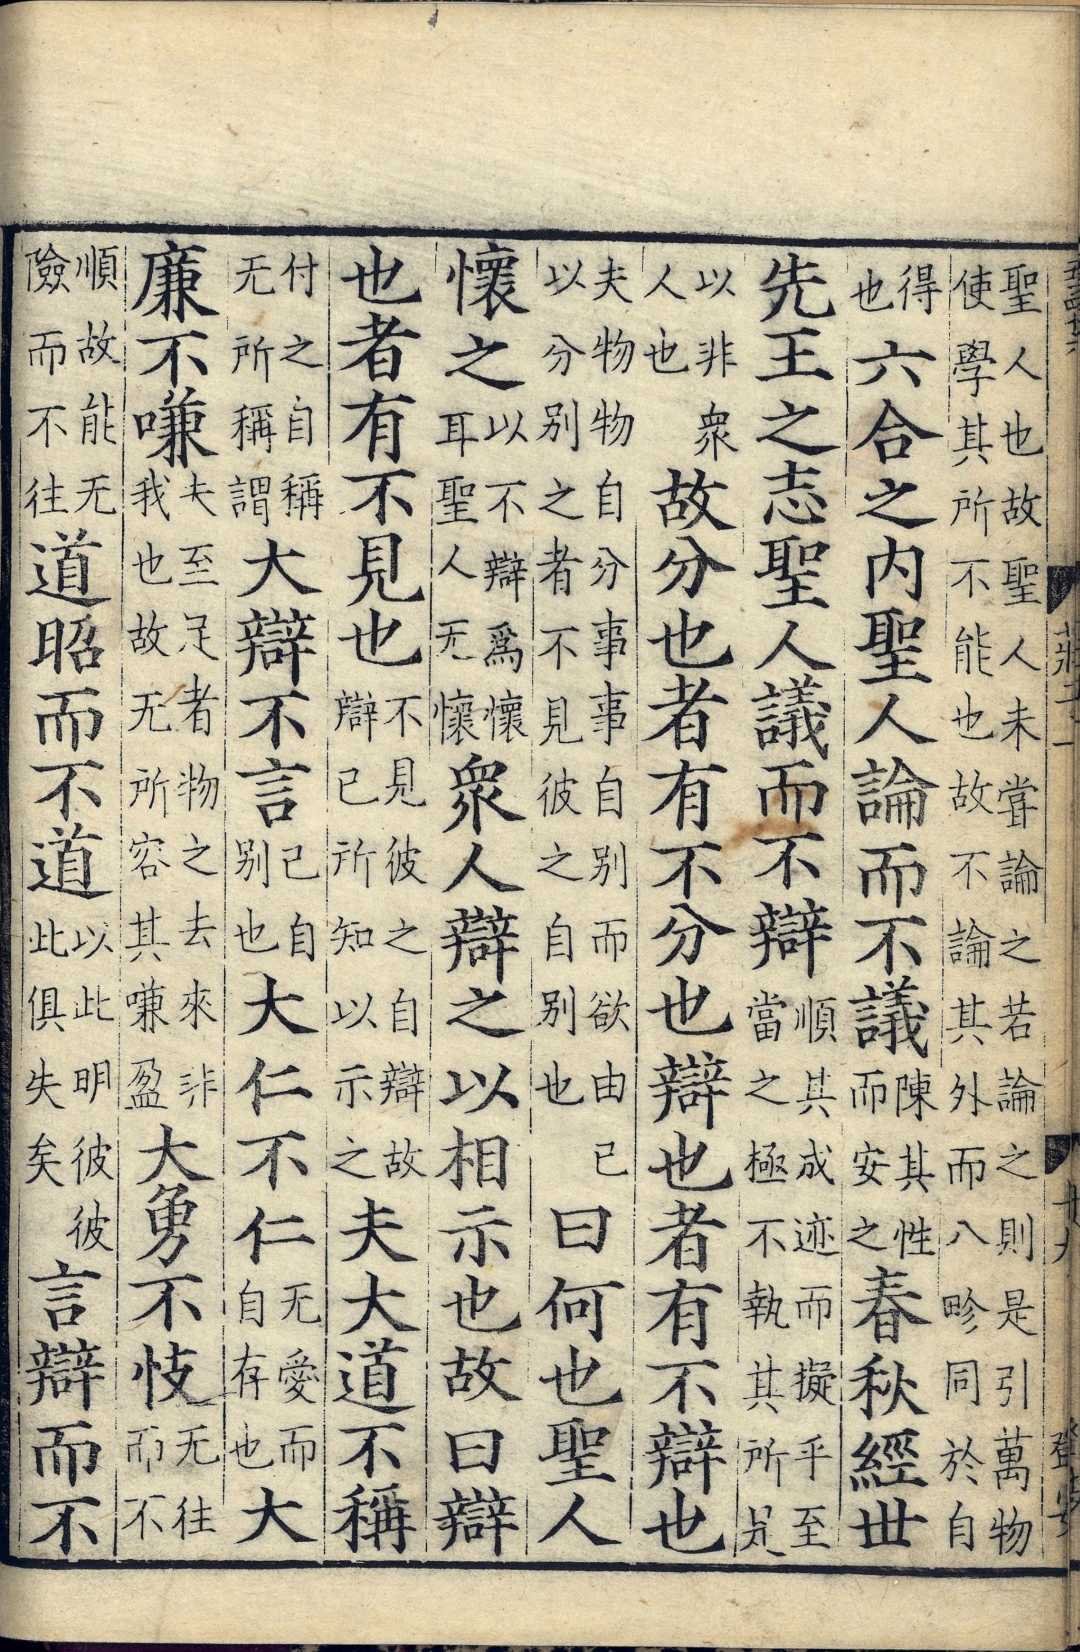 聖人也故聖人未甞論之若論之則是引萬物使學其所不能也故不論其外而八畛同於自
得也六合之内聖人論而不議陳其性而安之春秋經世
先王之志聖人議而不辯順其成迹而擬乎至當之極不執其所是
以非衆人也故分也者有不分也辯也者有不辯也
夫物物自分事事自别而欲由己以分别之者不見彼之自别也曰何也聖人
懷之以不辯爲懷耳聖人无懷衆人辯之以相示也故曰辯
也者有不見也不見彼之自辯故辯己所知以示之夫大道不稱
付之自稱无所稱謂大辯不言己自别也大仁不仁无愛而自存也大
廉不嗛夫至足者物之去來非我也故无所容其嗛盈大勇不忮无往而不
順故能无險而不往道昭而不道以此明彼彼此俱失矣言辯而不